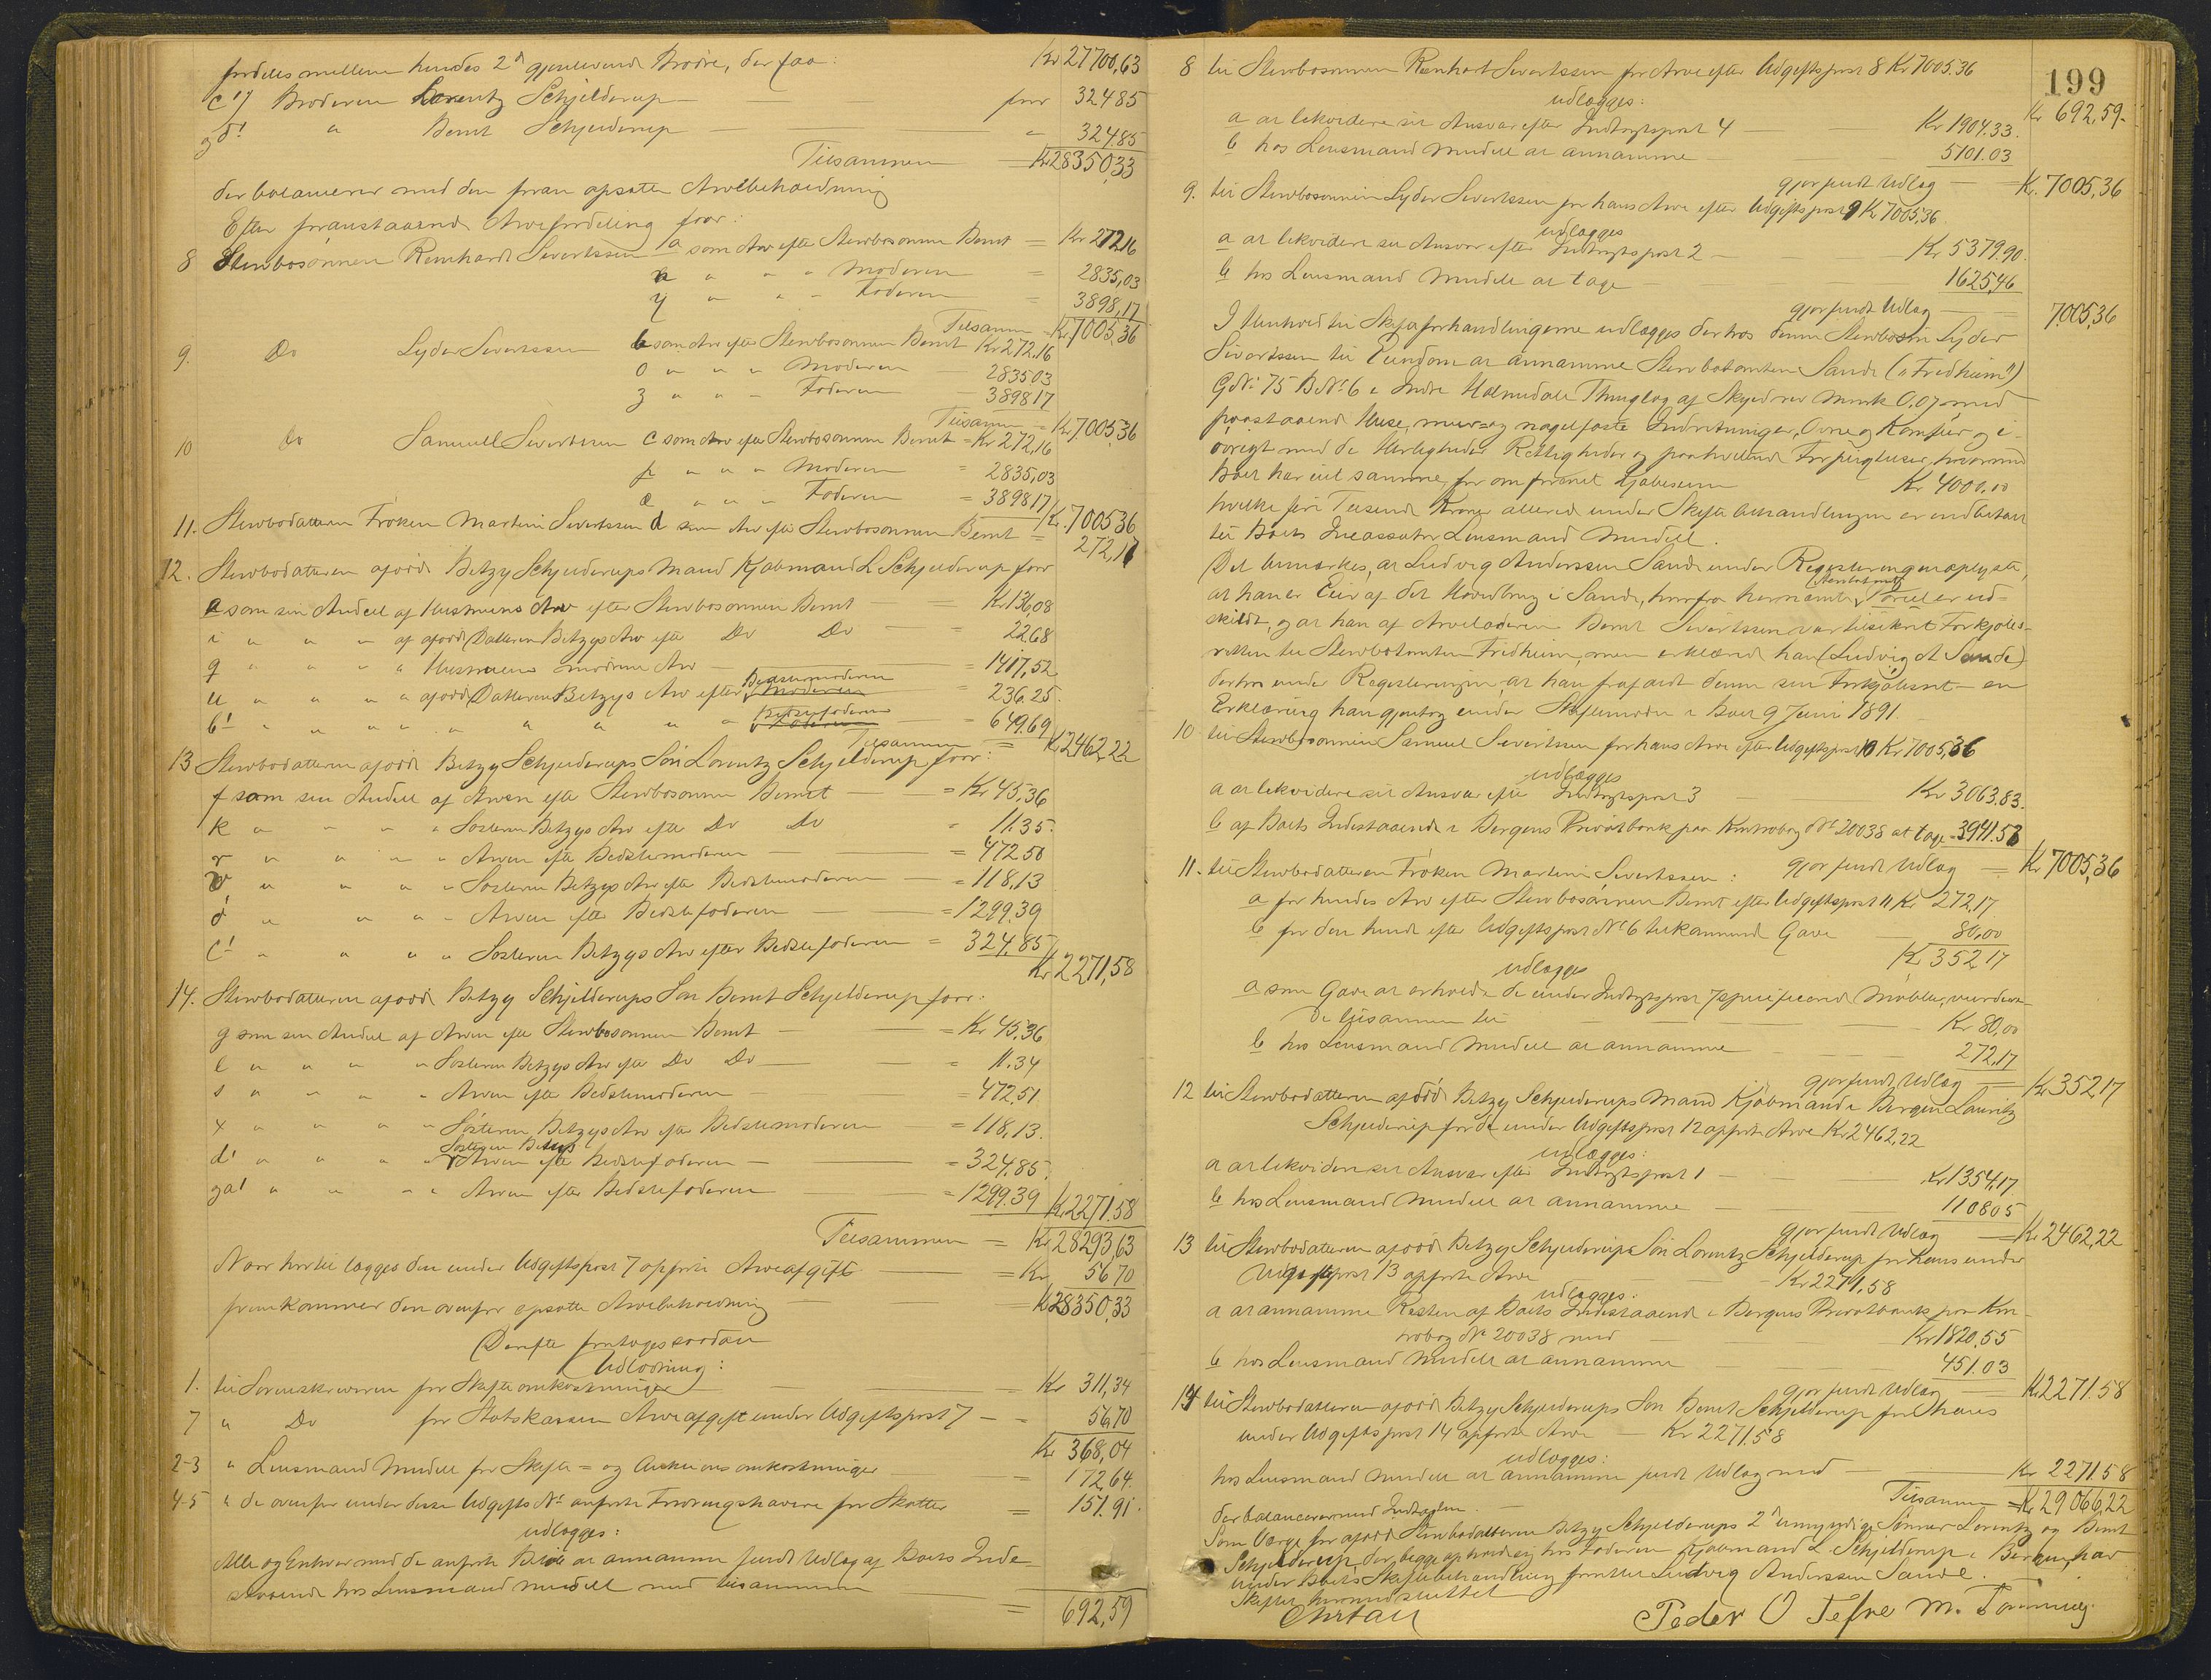 fordeles mellem hendes 2de gjenlevende Brødre, der faa: Kr 27700,63
c') Broderen Lorentz Schjelderup — faar 324.85
og d' " Bernt Schjelderup — " 324.85
Tilsammen — Kr 28350,33
der balancerer med den foran opsatte Arvebeholdning
Efter foranstaaende Arvefordeling faar:
8 Stervbosønnen Reinhardt Sivertssen a som Arv efter Stervbosønnen Bernt = Kr 272,16
n " " " Moderen = 2835,03
y " " " Faderen = 3898,17
Tilsammen = Kr 7005,36
9. Do Lyder Sivertssen b som Arv efter Stervbosønnen Bernt Kr 272,16
o " " " Moderen — 2835,03
z " " " Faderen — 3898,17
Tilsammen = Kr 7005,36
10 Do Samuell Sivertssen c som Arv efter Stervbosønnen Bernt = Kr 272,16
p " " " Moderen = 2835,03
æ " " " Faderen = 3898,17
Kr. 7005,36
11. Stervbodatteren Frøken Martini Sivertssen d som Arv efter Stervbosønnen Bernt = 272,17
12. Stervbodatteren afdøde Betzy Schjelderups Mand Kjøbmand L Schjelderup faar
e som sin Andeel af Hustruens Arv efter Stervbosønnen Bernt — Kr 136,08
i " " " af afdøde Datteren Betzys Arv efter Do Do — = 22.68
q " " " " Hustruens mødrene Arv — = 1417,52
u " " " " afdøde Datteren Betzys Arv efter Bedstemoderen = 236.25
b' " " " " " " " " Bedstefaderen = 649.69
Tilsammen = Kr 2462,22
13 Stervbodatteren afdøde Betzy Schjelderups Søn Lorentz Schjelderup faar:
f som sin Andeel af Arven efter Stervbosønnen Bernt — = Kr 45,36
k " " " " Søsteren Betzys Arv efter Do Do = 11.35
r " " " " Arven efter Bedstemoderen — = 472.50
v " " " " Søsteren Betzys Arv efter Bedstemoderen — = 118,13
ø " " " " Arven efter Bedstefaderen — = 1299.39
c' " " " " Søsteren Betzys Arv efter Bedstefaderen = 324,85
Kr 2271,58
14. Stervbodatteren afdøde Betzy Schjelderups Søn Bernt Schjelderup faar:
g som sin Andeel af Arven efter Stervbosønnen Bernt — = Kr 45,36
l " " " " Søsteren Betzys Arv efter Do Do — = 11.34
s " " " " Arven efter Bedstemoderen — = 472,51
x " " " " Søsteren Betzys Arv efter Bedstemoderen = 118,13.
d' " " " " Søsteren Betzys Arven efter Bedstefaderen — = 324.85
og a' " " " " Arven efter Bedstefaderen — = 1299.39 Kr 2271.58
Tilsammen = Kr 28293,63
Naar hertil lægges den under Udgiftspost 7 opførte Arveafgift — = Kr 56.70
fremkommer den ovenfor opsatte Arvebeholdning — = Kr 28350,33
Derefter foretoges saadan
Udlodning:
1. til Sorenskriveren for Skifteomkostninger — = Kr 311,34
7 " Do for Statskassen Arveafgift under Udgiftspost 7 — = 56,70
Kr 368,04
2-3 " Lensmand Mindell for Skifte= og Auktionsomkostninger — = 172,64.
4-5 " de ovenfor under disse Udgifts No anførte Fordringshavere for Skatter = 151.91.
udlægges:
Alle og Enhver med de anførte Beløb at annamme fuldt Udlæg af Boets Inde-
staaende hos Lensmand Mindell med tilsammen
= 692,59
199
Kr 692,59.
8 til Stervbosønnen Reinhart Sivertssen for Arve efter Udgiftspost 8 Kr 7005.36
udlægges:
a at likvidere sit Ansvar efter Indtægtspost 4 — Kr 1904.33.
b hos Lensmand Mindell at annamme — 5101.03
gjør fuldt Udlæg — Kr. 7005,36
9. til Stervbosønnen Lyder Sivertssen for hans Arv efter Udgiftspost 9 Kr 7005,36
udlægges
a at likvidere sit Ansvar efter Indtægtspost 2 — Kr 5379.90.
b hos Lensmand Mindell at tage — 1625,46
gjør fuldt Udlæg — 7005,36
I Henhold til Skifteforhandlingerne udlægges derhos denne Stervbosøn Lyder
Sivertssen til Eiendom at annamme Stervbotomten Sande ("Fredheim")
GNo 75 BNo 6 i Indre Holmedals Thinglag af Skyld rev Mark 0.07 med
paastaaende Huse, muur= og nagelfaste Indretninger, Ovne og Komfur og i-
øvrigt med de Herligheder Rettigheder og paahvilende Forpligtelser, hvormed
Boet har eiet samme, for omforenet Kjøbesum Kr 4000.00
hvilke fire Tusende Kroner allerede under Skiftebehandlingen er indbetalt
til Boets Incassator Lensmand Mindell.
Det bemærkes, at Ludvig Anderssen Sande under Registreringen oplyste,
at han er Eier af det Hovedbrug i Sande, hvorfra hernævnte Parcel er ud-
skildt, og at han af Arveladeren Bernt Sivertssen var tilsikret Forkjøbs-
retten til Stervbotomten Fredheim, men erklærede han (Ludvig A Sande)
derhos under Registreringen, at han frafaldt denne sin Forkjøbsret — en
Erklæring han gjentog under Skiftemøde i Boet 9 Juni 1891.
10 til Stervbosønnen Samuel Sivertssen for hans Arv efter Udgiftspost 10 Kr 7005,36
udlægges
a at likvidere sit Ansvar efter Indtægtspost 3 Kr 3063.83.
b af Boets Indestaaende i Bergens Privatbank paa Kontrabog No 20038 at tage = 3941.53
gjør fuldt Udlæg — Kr 7005,36
11. til Stervbodatteren Frøken Martini Sivertssen:
a for hendes Arv efter Stervbosønnen Bernt efter Udgiftspost 11 Kr 272,17
b for den hende efter Udgiftspost No 6 tilkommende Gave — 80,00
Kr 352,17
udlægges
a som Gave at erholde de under Indtægtspost 7 specificerede Møbler, vurder-
de tilsammen til — Kr 80,00
b hos Lensmand Mindell at annamme — 272,17
gjør fuldt Udlæg = Kr 352,17
12 til Stervbodatteren afdøde Betzy Schjelderups Mand Kjøbmand i Bergen Lauritz
Schjelderup for de under Udgiftspost 12 opførte Arve Kr 2462,22
udlægges:
a at likvidere sit Ansvar efter Indtægtspost 1 — Kr 1354,17
b hos Lensmand Mindell at annamme — 1108.05
gjør fuldt Udlæg — Kr 2462,22
13 til Stervbodatteren afdøde Betzy Schjelderups Søn Lorentz Schjelderup for hans under
Udgiftspost 13 opførte Arve — Kr 2271,58
udlægges:
a at annamme Resten af Boets Indestaaende i Bergens Privatbank paa Kon-
trabog No 20038 med — Kr 1820,55
b hos Lensmand Mindell at annamme — 451.03
gjør fuldt Udlæg = Kr 2271.58
14 til Stervbodatteren afdøde Betzy Schjelderups Søn Bernt Schjelderup for hans
under Udgiftspost 14 opførte Arve — Kr 2271.58
udlægges:
hos Lensmand Mindell at annamme fuldt Udlæg med — Kr 2271.58
Tilsammen = Kr 29066,22
der balancerer med Indtægten.
Som Værge for afdøde Stervbodatteren Betzy Schjelderups 2de umyndige Sønner Lorentz og Bernt
Schjelderup, der begge opholder sig hos Faderen Kjøbmand L. Schjelderup i Bergen, har
under Boets Skiftebehandling fremmet Ludvig Anderssen Sande.
Skiftet hermed sluttet
Peder O Tefre